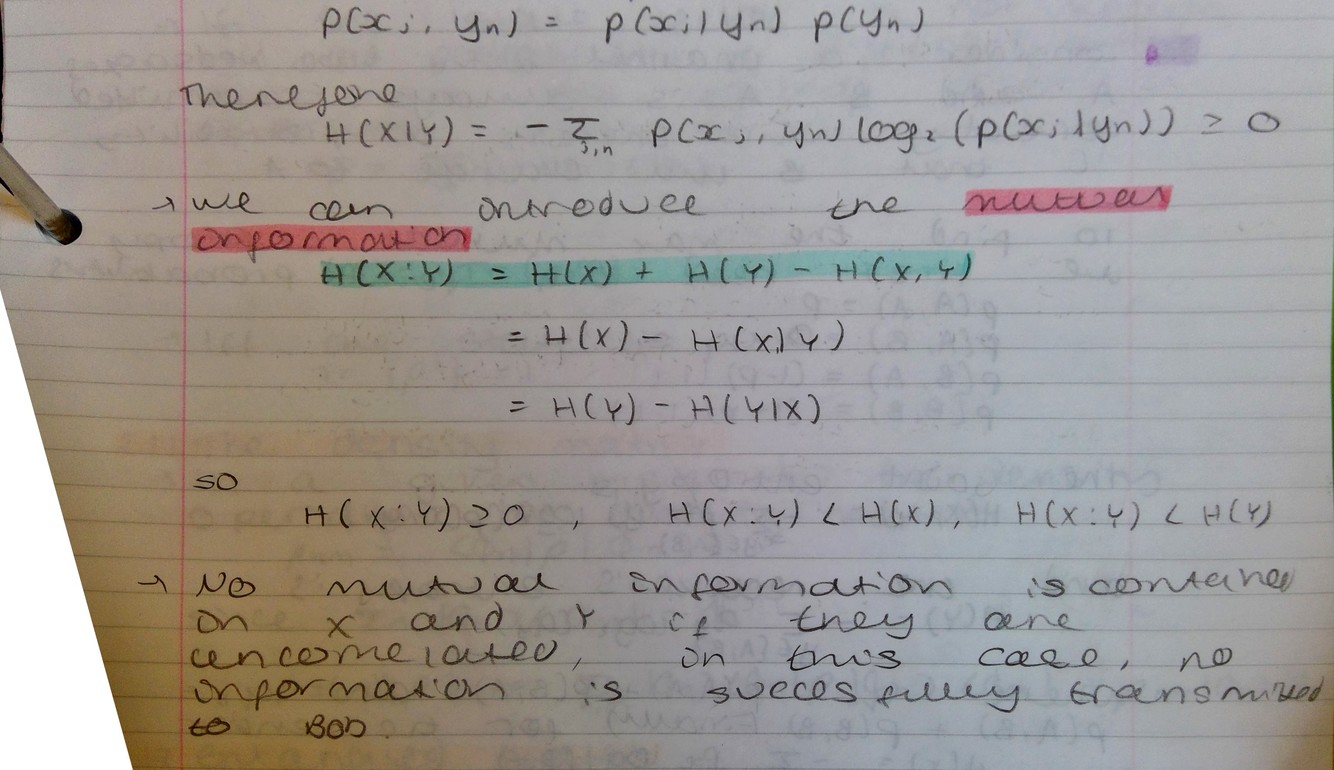 p(xj, yn) = p(xj|yn) p(yn)
Therefore
H(X|Y) = - Σj,n p(xj, yn) log2 (p(xj|yn)) ≥ 0
→ we can introduce the mutual
information
H(X:Y) = H(X) + H(Y) - H(X,Y)
= H(X) - H(X|Y)
= H(Y) - H(Y|X)
so
H(X:Y) ≥ 0, H(X:Y) < H(X), H(X:Y) < H(Y)
→ No mutual information is contained
in X and Y if they are
uncorrelated, in this case, no
information is succesfully transmitted
to Bob.